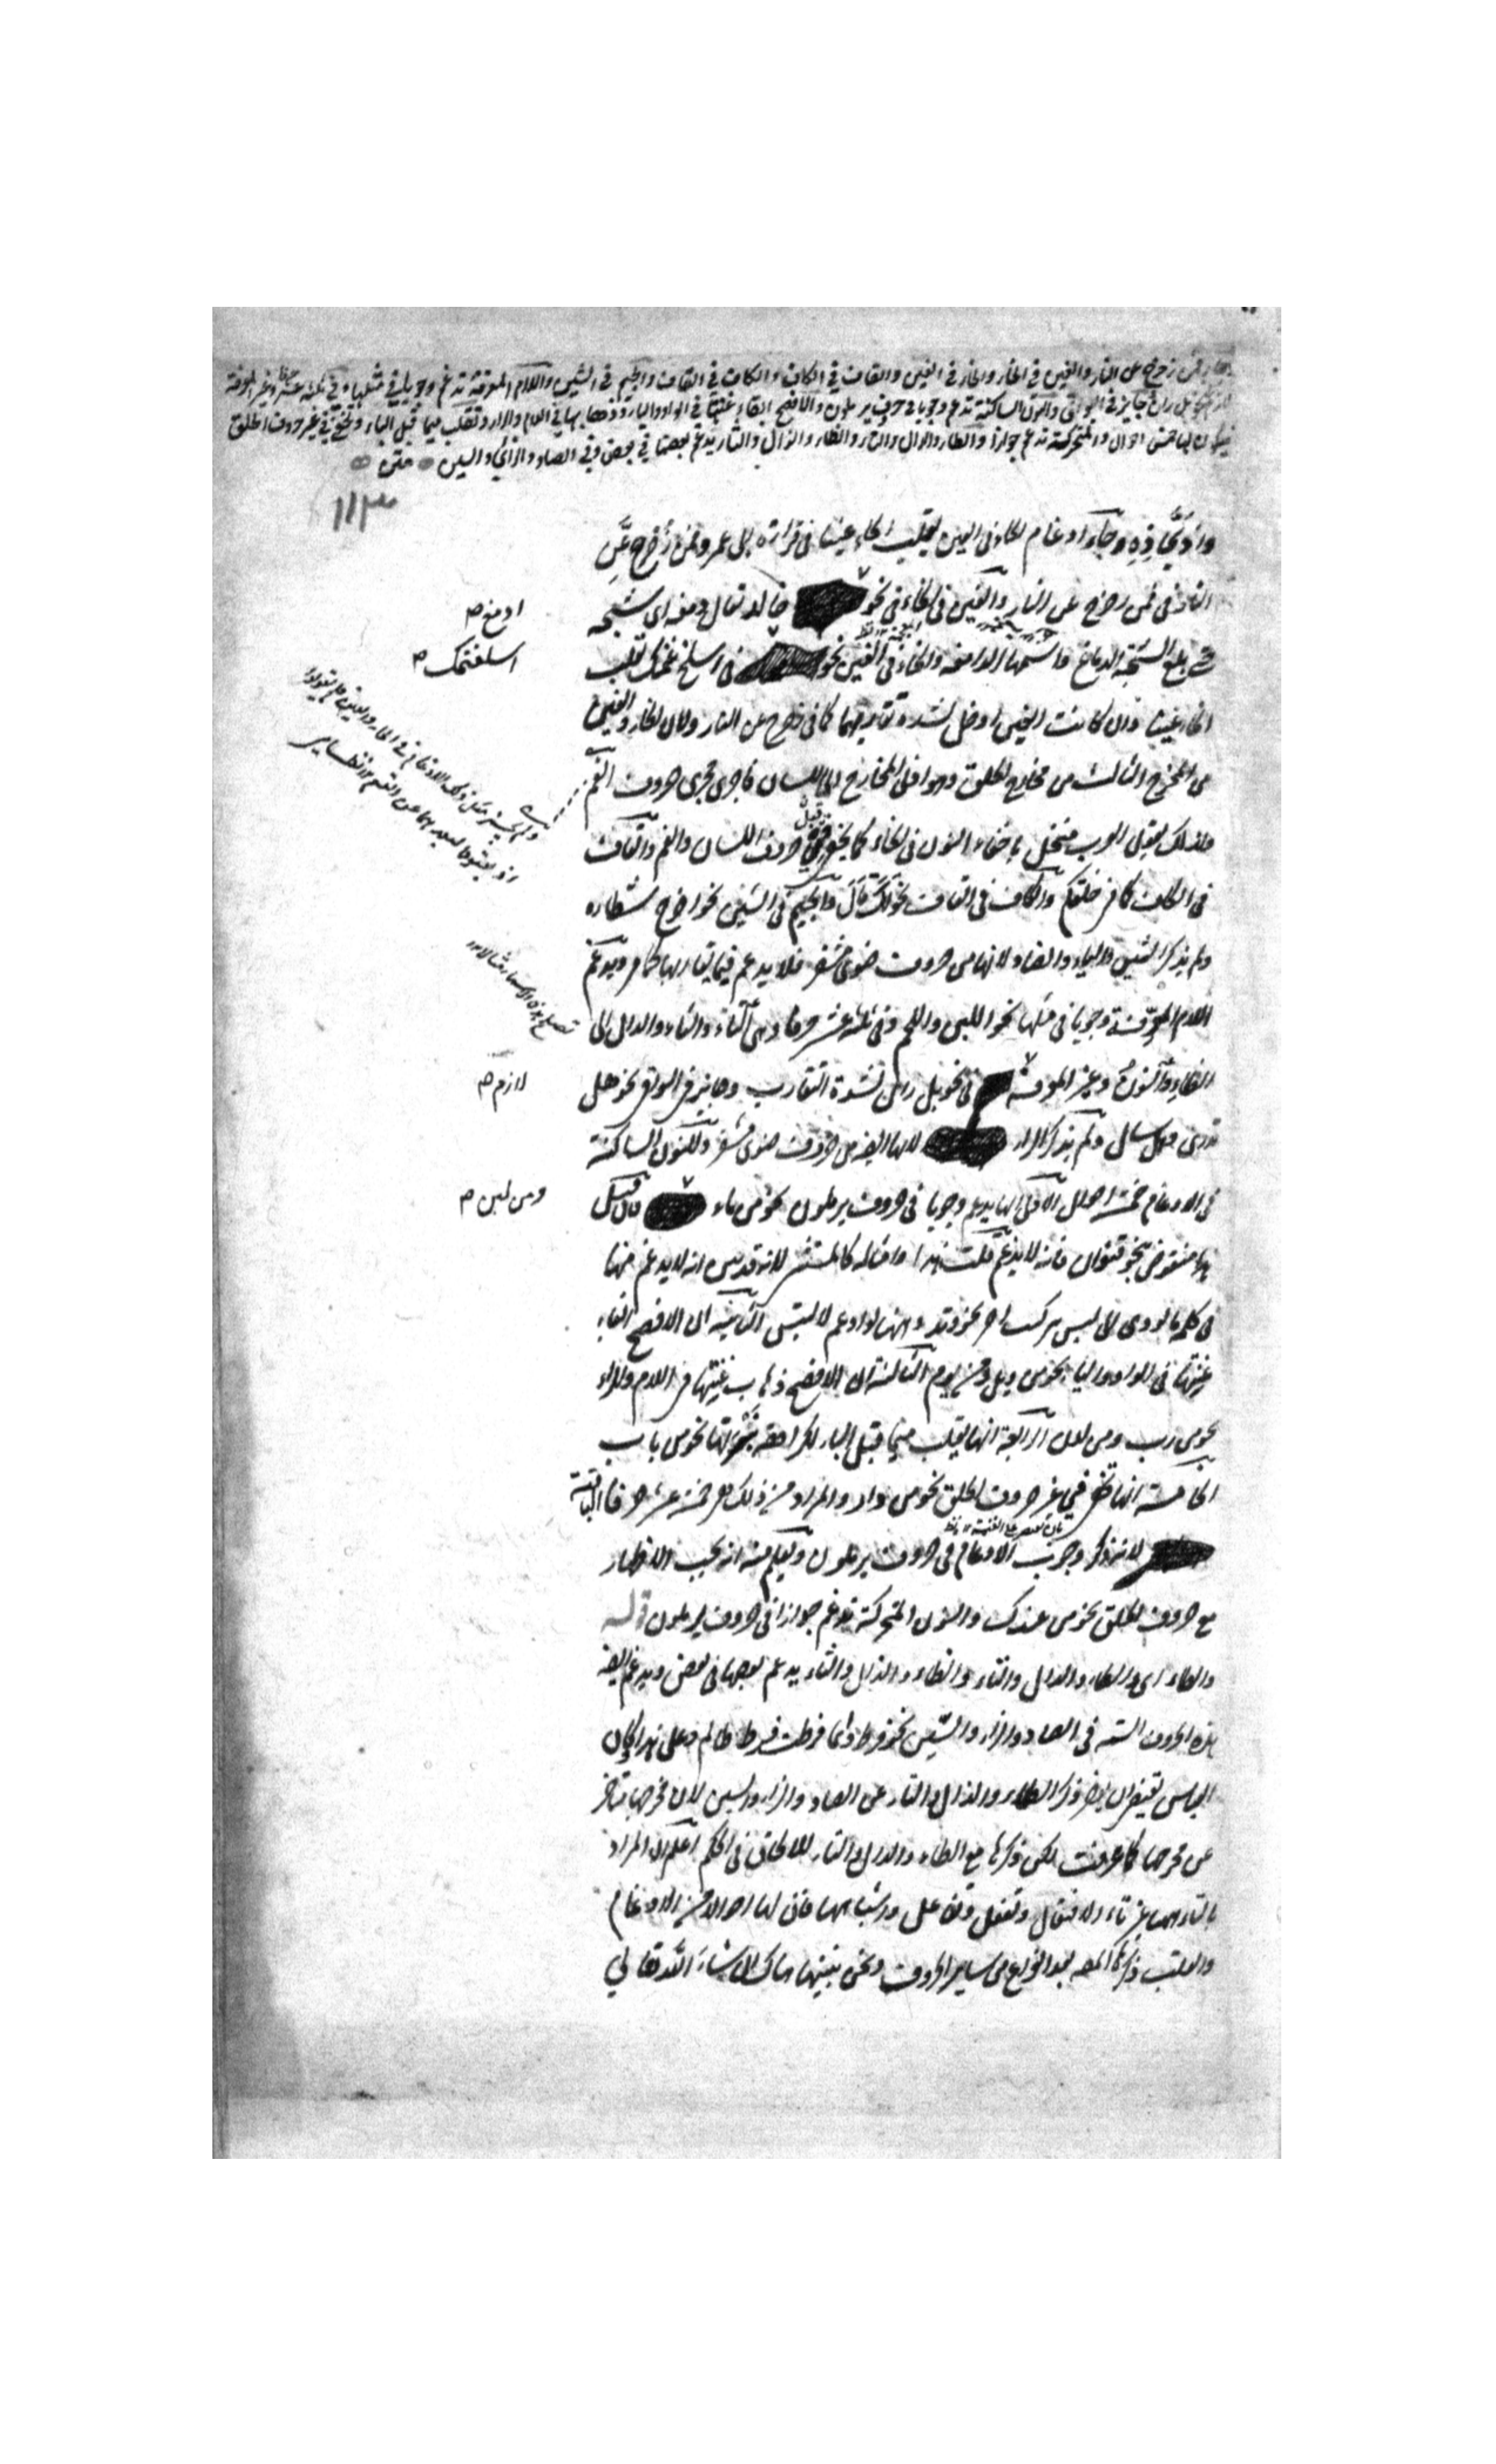 فمن زحزح عن النار والغين في الخاء والخاء في الغين والقاف في الكاف والكاف في القاف والجيم في الشين واللام المعرفة تدغم وجوبا في مثلها وفي ثلثة عشر حرفا وغير المعرفة
لازم في نحو بل ران وجايز في البواقي والنون الساكنة تدغم وجوبا في حروف يرملون والافصح ابقاء غنتها في الواو والياء وذهابها في اللام والراء وتقلب ميما قبل الباء وتخفى في غير حروف الحلق
فيكون لها خمس احوال والمتحركة تدغم جوازا والطاء والدال والتاء والظاء والذال والثاء يدغم بعضها في بعض وفي الصاد والزاي والسين متن
١١٣
واذبحاذه وجاء ادغام الحاء في العين بقلب الحاء عينا في قراءة ابي عمرو فمن زحزح عن
النار في فمن زحزح عن النار والغين في الخاء في نحو خالد تقال دمغه اي شجه
ادمغ ص
حتى بلغ الشجة الدماغ واسمها الدامغة والخاء في الغين نحو في اسلخ غنمك تقلب
اسلغنمك ص
الخاء غينا وان كانت الغين ادخل لشدة تقاربهما كما في زحزح عن النار ولان الخاء والغين
من المخرج الثالث من مخارج الحلق وهو اقل المخارج الى اللسان فاجرى مجرى حروف الفم
ولذلك يقول العرب منخل باخفاء النون في الخاء كما يخفى قبل حروف اللسان والفم والقاف
في الكاف كما في خلقكم والكاف في القاف نحو لك قال والجيم في الشين نحو اخرج شطاره
ولم يذكر الشين والياء والضاد لانها من حروف ضوى مشفر فلا يدغم فيما يقاربها كما مر ويدغم
اللام المعرفة وجوبا في مثلها نحو اللبن واللحم وفي ثلثة عشر حرفا وهي التاء والثاء والدال الى
الظاء والنون وغير المعرفة في نحو بل ران لشدة التقارب وجايز في البواقي نحو هل
لازم ص
تدرى وهل سال ولم يذكر الراء لانها ايضا من حروف ضوى مشفر وللنون الساكنة
في الادغام خمسة احوال الاولى انها يدغم وجوبا في حروف يرملون نحو من ماء فان قيل
ومن لبن ص
هذا منقوض بنحو قنوان فانه لا يدغم قلت هذا وامثاله كالمستثنى لانه قد بين انه لا يدغم منها
في كلمة ما يودى الى لبس بتركيب اخر نحو وتد وههنا لو ادغم لالتبس الثانية ان الافصح ابقاء
غنتها في الواو والياء نحو من ويل ومن يوم الثالثة ان الافصح ذهاب غنتها في اللام والراء
نحو من رب ومن لدن الرابعة انها يقلب ميما قبل الباء نحو من باب
الخامسة انها تخفى في غير حروف الحلق نحو من دار والمراد من ذلك هو خمسة عشر حرفا الباقية
لانه ذكر وجوب الادغام في حروف يرملون ويعلم منه انه يجب الاظهار
مع حروف الحلق نحو من عندك والنون المتحركة تدغم جوازا في حروف يرملون قوله
والطاء اى والطاء والدال والتاء والظاء والذال والثاء يدغم بعضها في بعض ويدغم ايضا
هذه الحروف الستة في الصاد والزاء والسين نحو فرط ظالم وعلى هذا وكان
القياس يقتضى ان يؤخر ذكر الظاء والذال والثاء عن الصاد والزاء والسين لان مخرجها متاخر
عن مخرجها كما عرفت لكن ذكرها مع الطاء والدال والتاء للاتحاق في الحكم اعلم ان المراد
بالتاء ههنا غير تاء الافتعال وتفعل وتفاعل واشباهها فان لها احوالا من الادغام
والقلب ذكرها المصـ بعد الفراغ من ساير الحروف ونحن نبينها هناك ان شاء الله تعالى